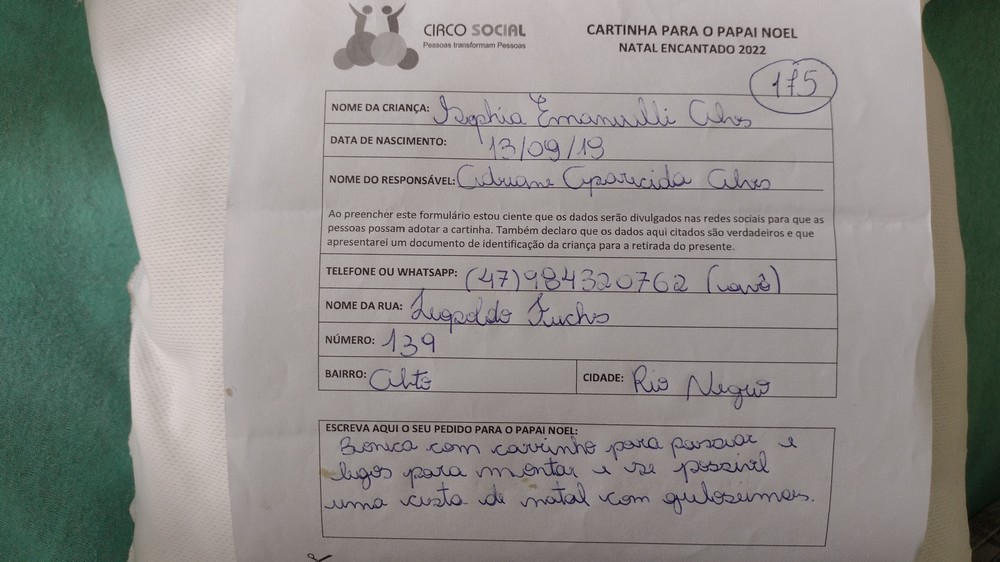 CIRCO SOCIAL
Pessoas transformam Pessoas
CARTINHA PARA O PAPAI NOEL
NATAL ENCANTADO 2022
175
NOME DA CRIANÇA: Sophia Emanuelli Alves
DATA DE NASCIMENTO: 13/09/19
NOME DO RESPONSÁVEL: Adriane Aparecida Alves
Ao preencher este formulário estou ciente que os dados serão divulgados nas redes sociais para que as
pessoas possam adotar a cartinha. Também declaro que os dados aqui citados são verdadeiros e que
apresentarei um documento de identificação da criança para a retirada do presente.
TELEFONE OU WHATSAPP: (47)984320762 (vovô)
NOME DA RUA: Leopoldo Fuchs
NÚMERO: 139
BAIRRO: Alto CIDADE: Rio Negro
ESCREVA AQUI O SEU PEDIDO PARA O PAPAI NOEL:
Boneca com carrinho para passear e
legos para montar e se possivel
uma cesta de natal com guloseimas.